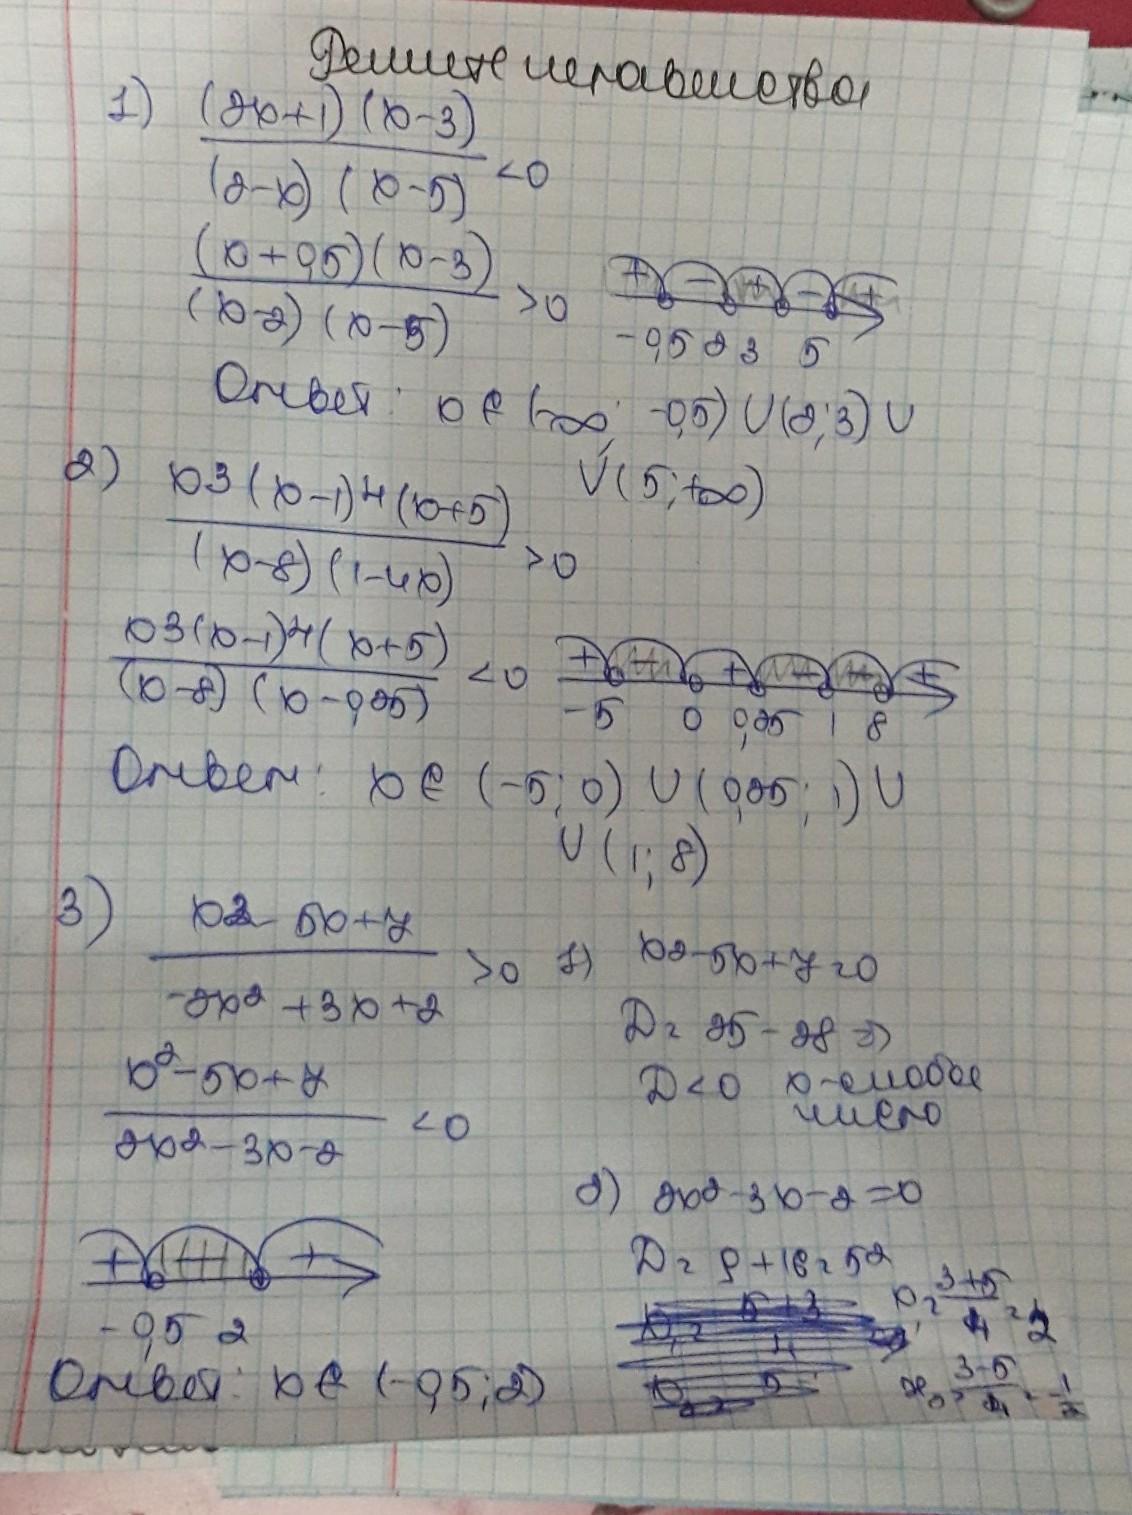 Решите неравенства
1) (2x+1)(x-3)
(2-x)(x-5) <0
(x+0,5)(x-3)
(x-2)(x-5) >0
+ - + - +
-0,5 2 3 5
Ответ: x ∈ (-∞; -0,5) ∪ (2; 3) ∪
∪ (5; +∞)
2) x3(x-1)4(x+5)
(x-8)(1-4x) >0
x3(x-1)4(x+5)
(x-8)(x-0,25) <0
+ - + - - +
-5 0 0,25 1 8
Ответ: x ∈ (-5; 0) ∪ (0,25; 1) ∪
∪ (1; 8)
3) x2-5x+7
-2x2+3x+2 >0
x²-5x+7
2x2-3x-2 <0
1) x2-5x+7=0
D= 25-28 =>
D<0 x-любое
число
2) 2x2-3x-2=0
D= 9+16=52
x1= 3+5
4 = 2
x2= 3-5
4 = -1
2
+ - +
-0,5 2
Ответ: x ∈ (-0,5; 2)